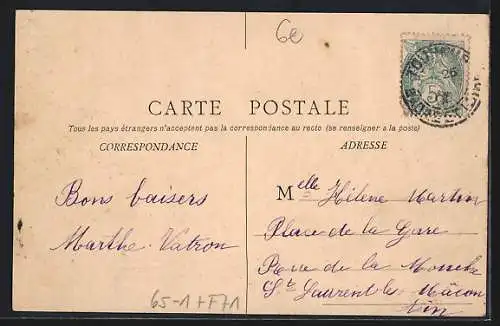 6e
CARTE POSTALE
Tous les pays étrangers n'acceptent pas la correspondance au recto (se renseigner a la poste)
CORRESPONDANCE
ADRESSE
Bons baisers
Marthe Vatron
Melle Hélène Martin
Place de la Gare
de la
St Laurent les Mâcon
Ain
65-1+F71